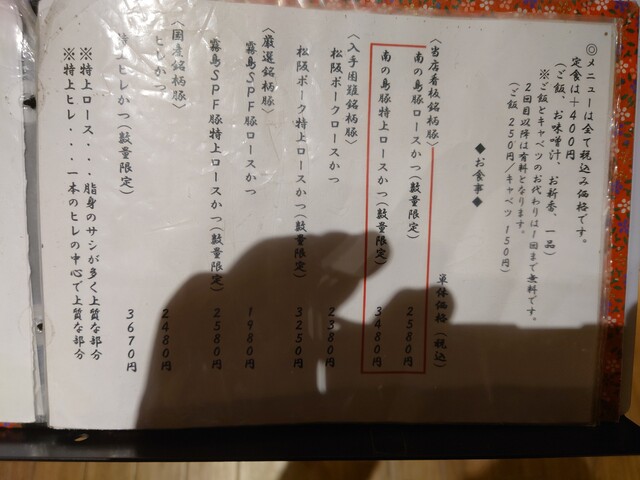 ◎メニューは全て税込み価格です。
定食は＋400円
（ご飯、お味噌汁、お新香、一品）
※ご飯とキャベツのお代わりは1回まで無料です。
2回目以降は有料となります。
（ご飯 250円／キャベツ 150円）
◆お食事◆
単体価格（税込）
〈当店看板銘柄豚〉
南の島豚ロースかつ（数量限定） 2580円
南の島豚特上ロースかつ（数量限定） 3480円
〈入手困難銘柄豚〉
松阪ポークロースかつ 2380円
松阪ポーク特上ロースかつ（数量限定） 3250円
〈厳選銘柄豚〉
霧島SPF豚ロースかつ 1980円
霧島SPF豚特上ロースかつ（数量限定） 2580円
〈国産銘柄豚〉
ヒレかつ 2480円
特上ヒレかつ（数量限定） 3670円
※特上ロース・・・脂身のサシが多く上質な部分
※特上ヒレ・・・・一本のヒレの中心で上質な部分